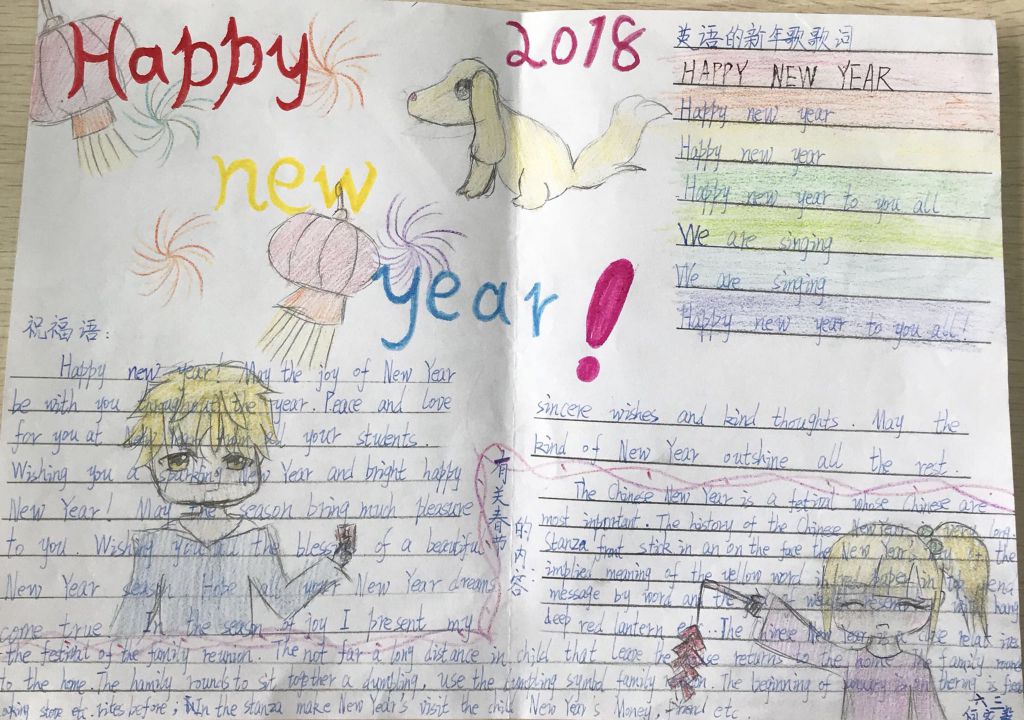 Happy
new
year!
2018
英语的新年歌歌词
HAPPY NEW YEAR
Happy new year
Happy new year
Happy new year to you all
We are singing
We are singing
Happy new year to you all!
祝福语:
Happy new year! May the joy of New Year
be with you throughout the year. Peace and love
for you at all your students.
Wishing you a sparkling New Year and bright happy
New Year! May the season bring much pleasure
to you. Wishing you all the of a beautiful
New Year season. Hope all your New Year dreams
come true. In the season of joy I present my
sincere wishes and kind thoughts. May the
kind of New Year outshine all the rest.
有关春节的内容:
The Chinese New Year is a festival whose Chinese are
most important. The history of the Chinese New Year is very long.
Stanza front stick in an on the face the New Year.
implied meaning of the yellow word in
message by word and the hang
deep red lantern etc. The Chinese New Year is a
the festival of the family reunion. The not far a long distance in child that leave the returns to the home. The family rounds
to the home. The hamily rounds to sit together a dumbling, use the symbol family The beginning of is
store etc. rites before; In the stanza make New Year's visit the child New Year's Money, friend etc.
六三